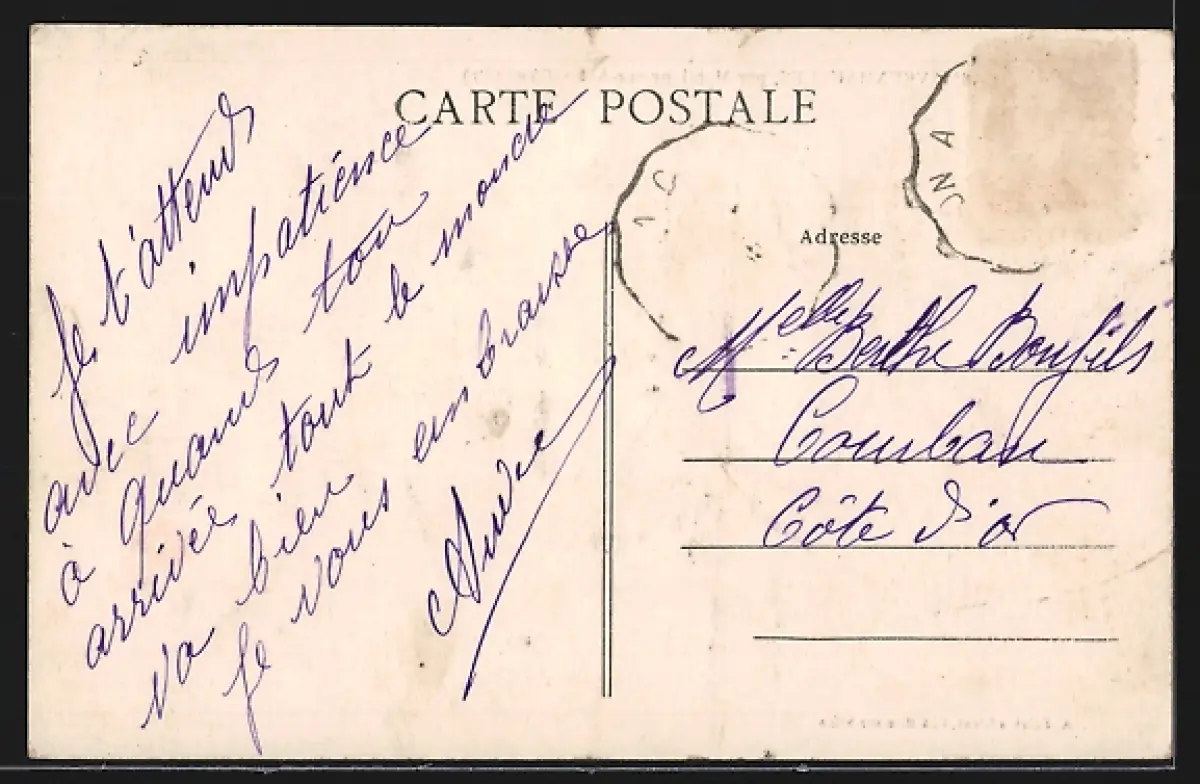 CARTE POSTALE
Je t'attends
avec impatience
à quands ton
arrivée tout le monde
va bien
je vous embrasse
André
Adresse
Melle Berthe Bonfils
Courban
Côte d'or